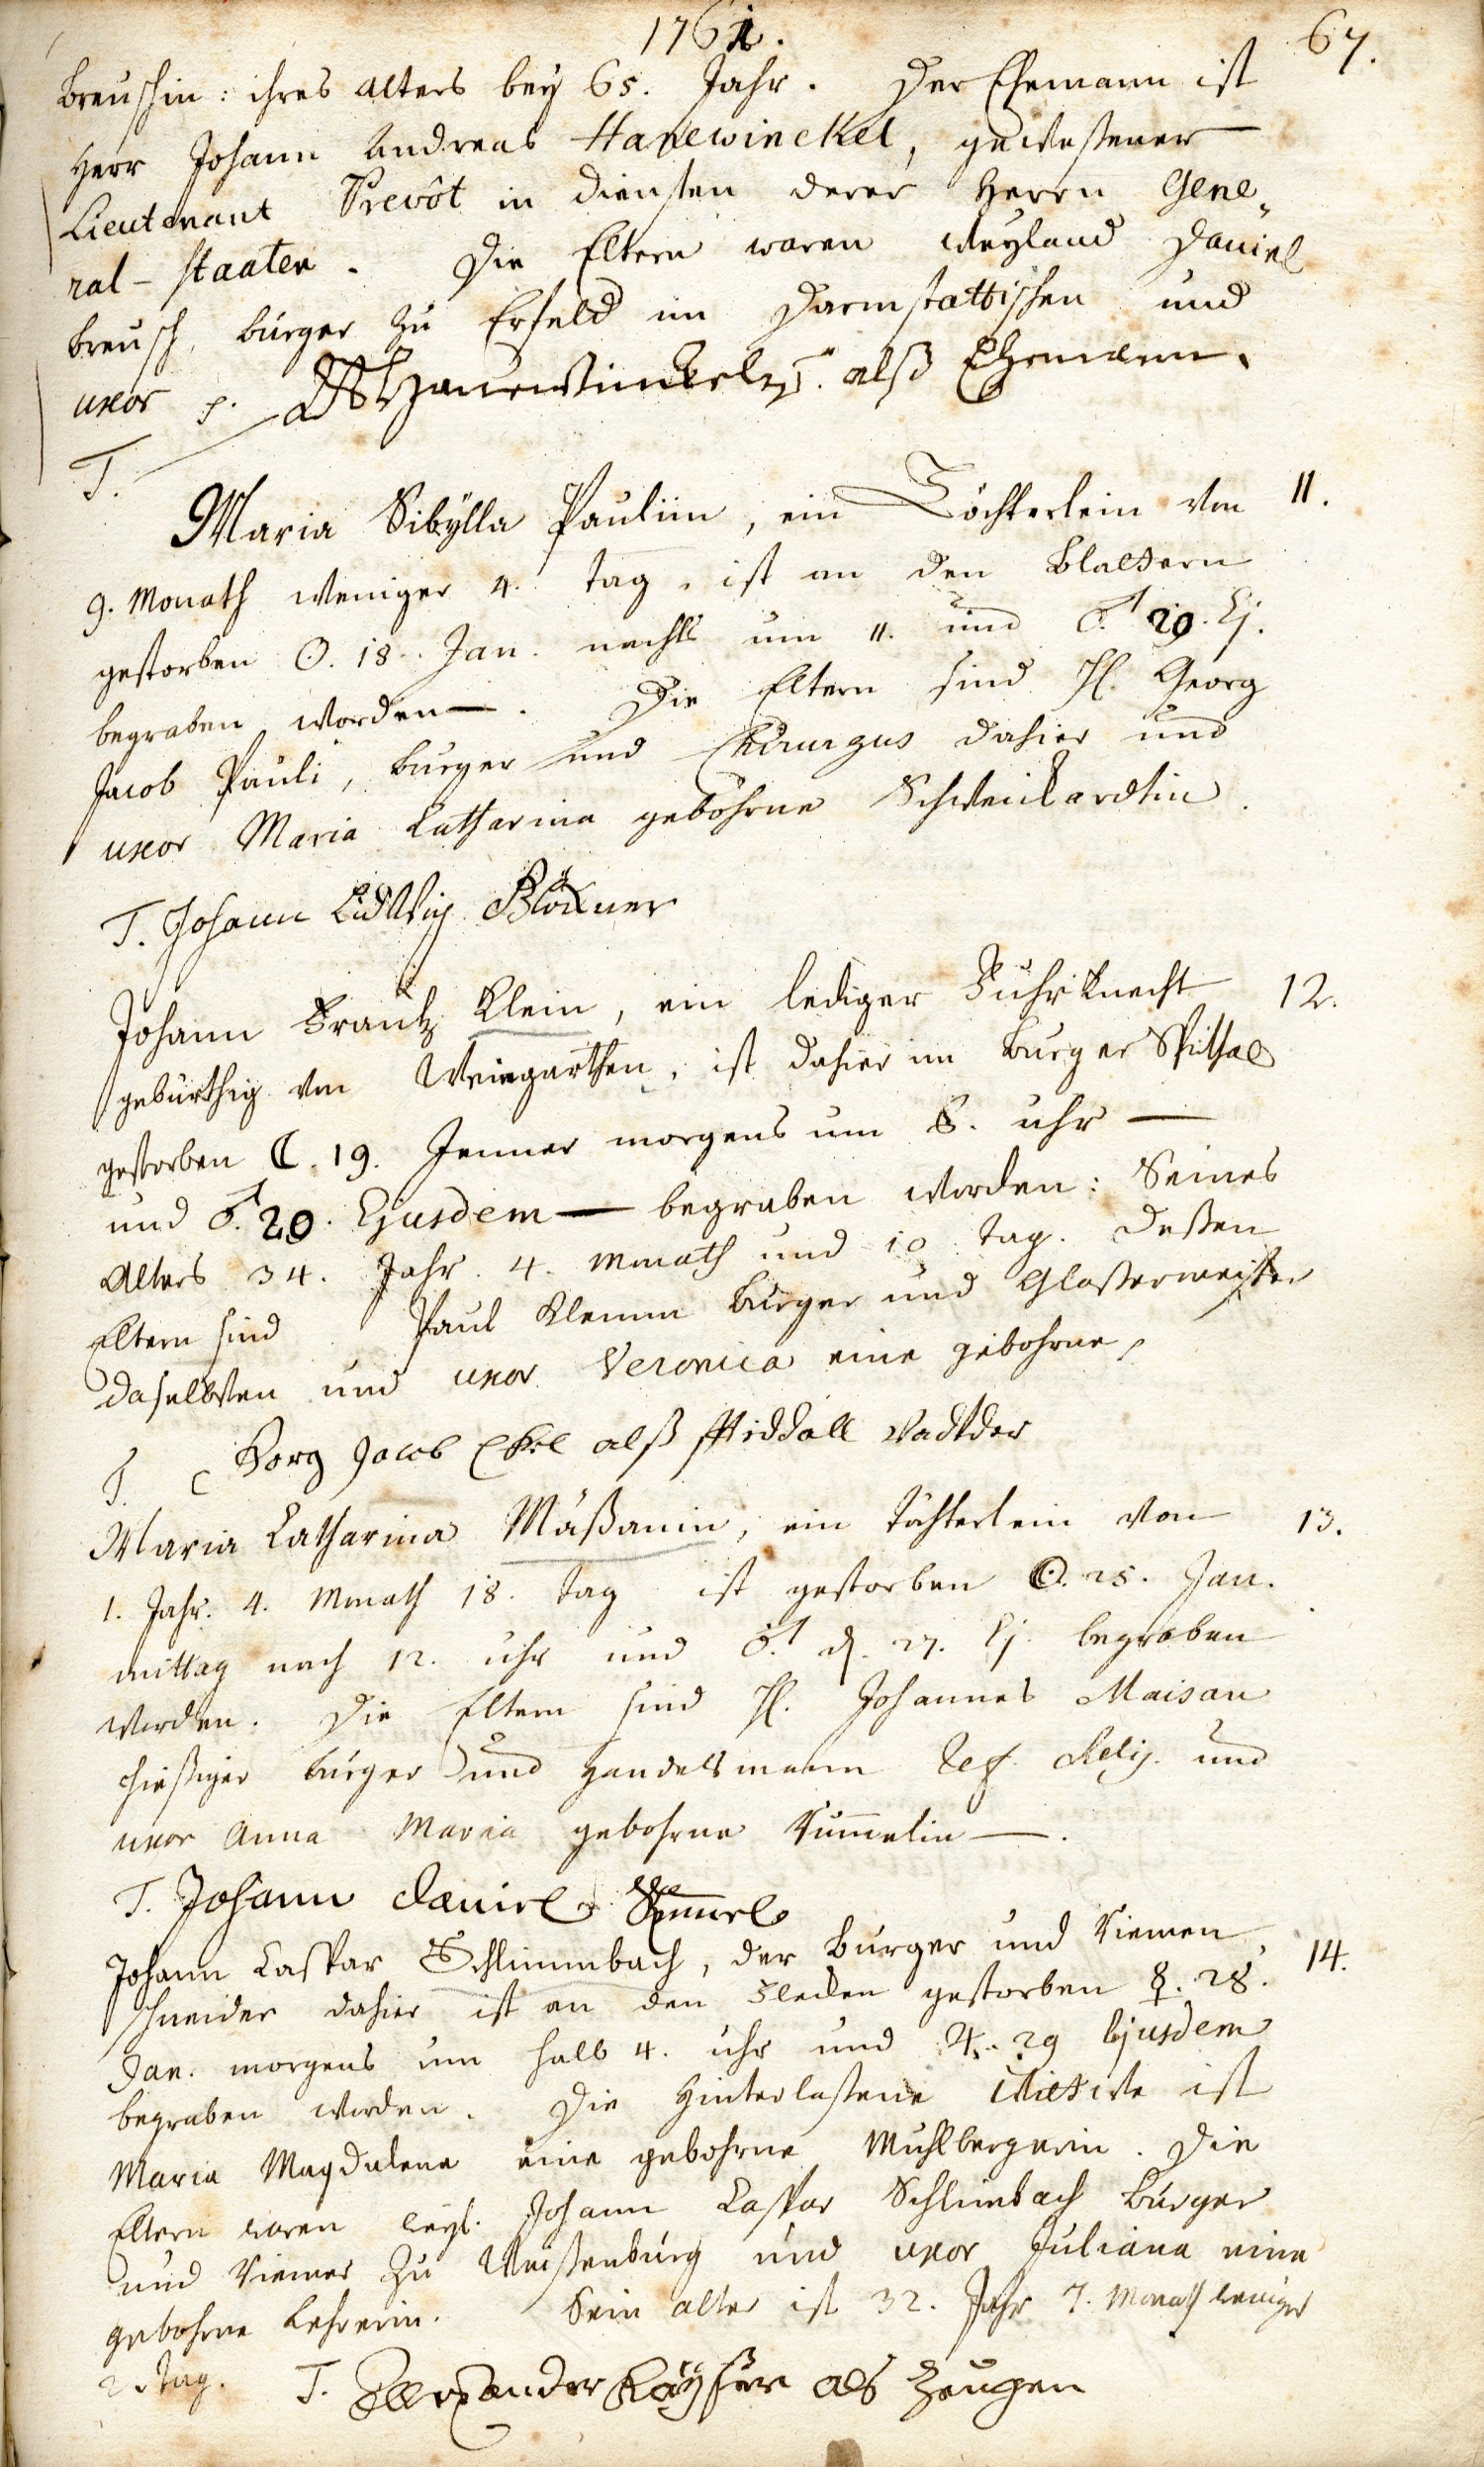 1761.
67.
Breuschin: ihres alters bey 65. Jahr. Der Ehemann ist
Herr Johann Andreas Hanewinckel, gewesener
Lieutenant Prevôt in diensten derer Herrn Gene-
ral-staaten. Die Eltern waren weyland Daniel
Breusch, burger zu Erfeld im Darmstattischen und
uxor p. Hanewinckel alß Ehemann.
T.
Maria Sibÿlla Pauliin, ein Töchterlein von 11.
9. Monath weniger 4. tag, ist an den Blattern
gestorben ☉. 18. Jan. nachts um 11. und ♂. 20. Ej.
begraben worden —. Die Eltern sind H. Georg
Jacob Pauli, burger und Chirurgus dahier und
uxor Maria Catharina gebohrne Schweickardtin.
T. Johann Ludwig Blöxner
Johann Frantz Klein, ein lediger Fuhrknecht 12.
gebürthig von Weingarthen, ist dahier im Burger Spithal
gestorben ☾. 19. Jenner morgens um 8. uhr —
und ♂. 20. Ejusdem — begraben worden: Seines
Alters 34. Jahr. 4. Monath und 10 tag. dessen
Eltern sind Paul Klemm Burger und Glasermeister
daselbsten und uxor Veronica eine gebohrne,
T. Georg Jacob Ekel alß Spiddall Vadtder
Maria Catharina Mäßanin, ein töchterlein von 13.
1. Jahr. 4. Monath 18. tag ist gestorben ☉. 25. Jan.
mittag nach 12. uhr und ♂. d. 27. Ej. begraben
worden. Die Eltern sind H. Johannes Maisan
hießiger burger und Handelsmann Ref. Relig. und
uxor Anna Maria gebohrne Kümmelin —.
T. Johann Daniel
Johann Caspar Schlimmbach, der Burger und Riemen 14.
schneider dahier ist an den Flecken gestorben ☿. 28.
Jan. morgens um halb 4. uhr und ♃. 29 Ejusdem
begraben worden. Die Hinterlassene Wittwe ist
Maria Magdalena eine gebohrne Mühlbergerin. Die
Eltern waren weyl. Johann Caspar Schlimbach Burger
und Riemer zu Weissenburg und uxor Juliana eine
gebohrne Lehrerin. Sein alter ist 32. Jahr 7. Monath weniger
2. tag. T. Allexander Kaÿser als Zeugen